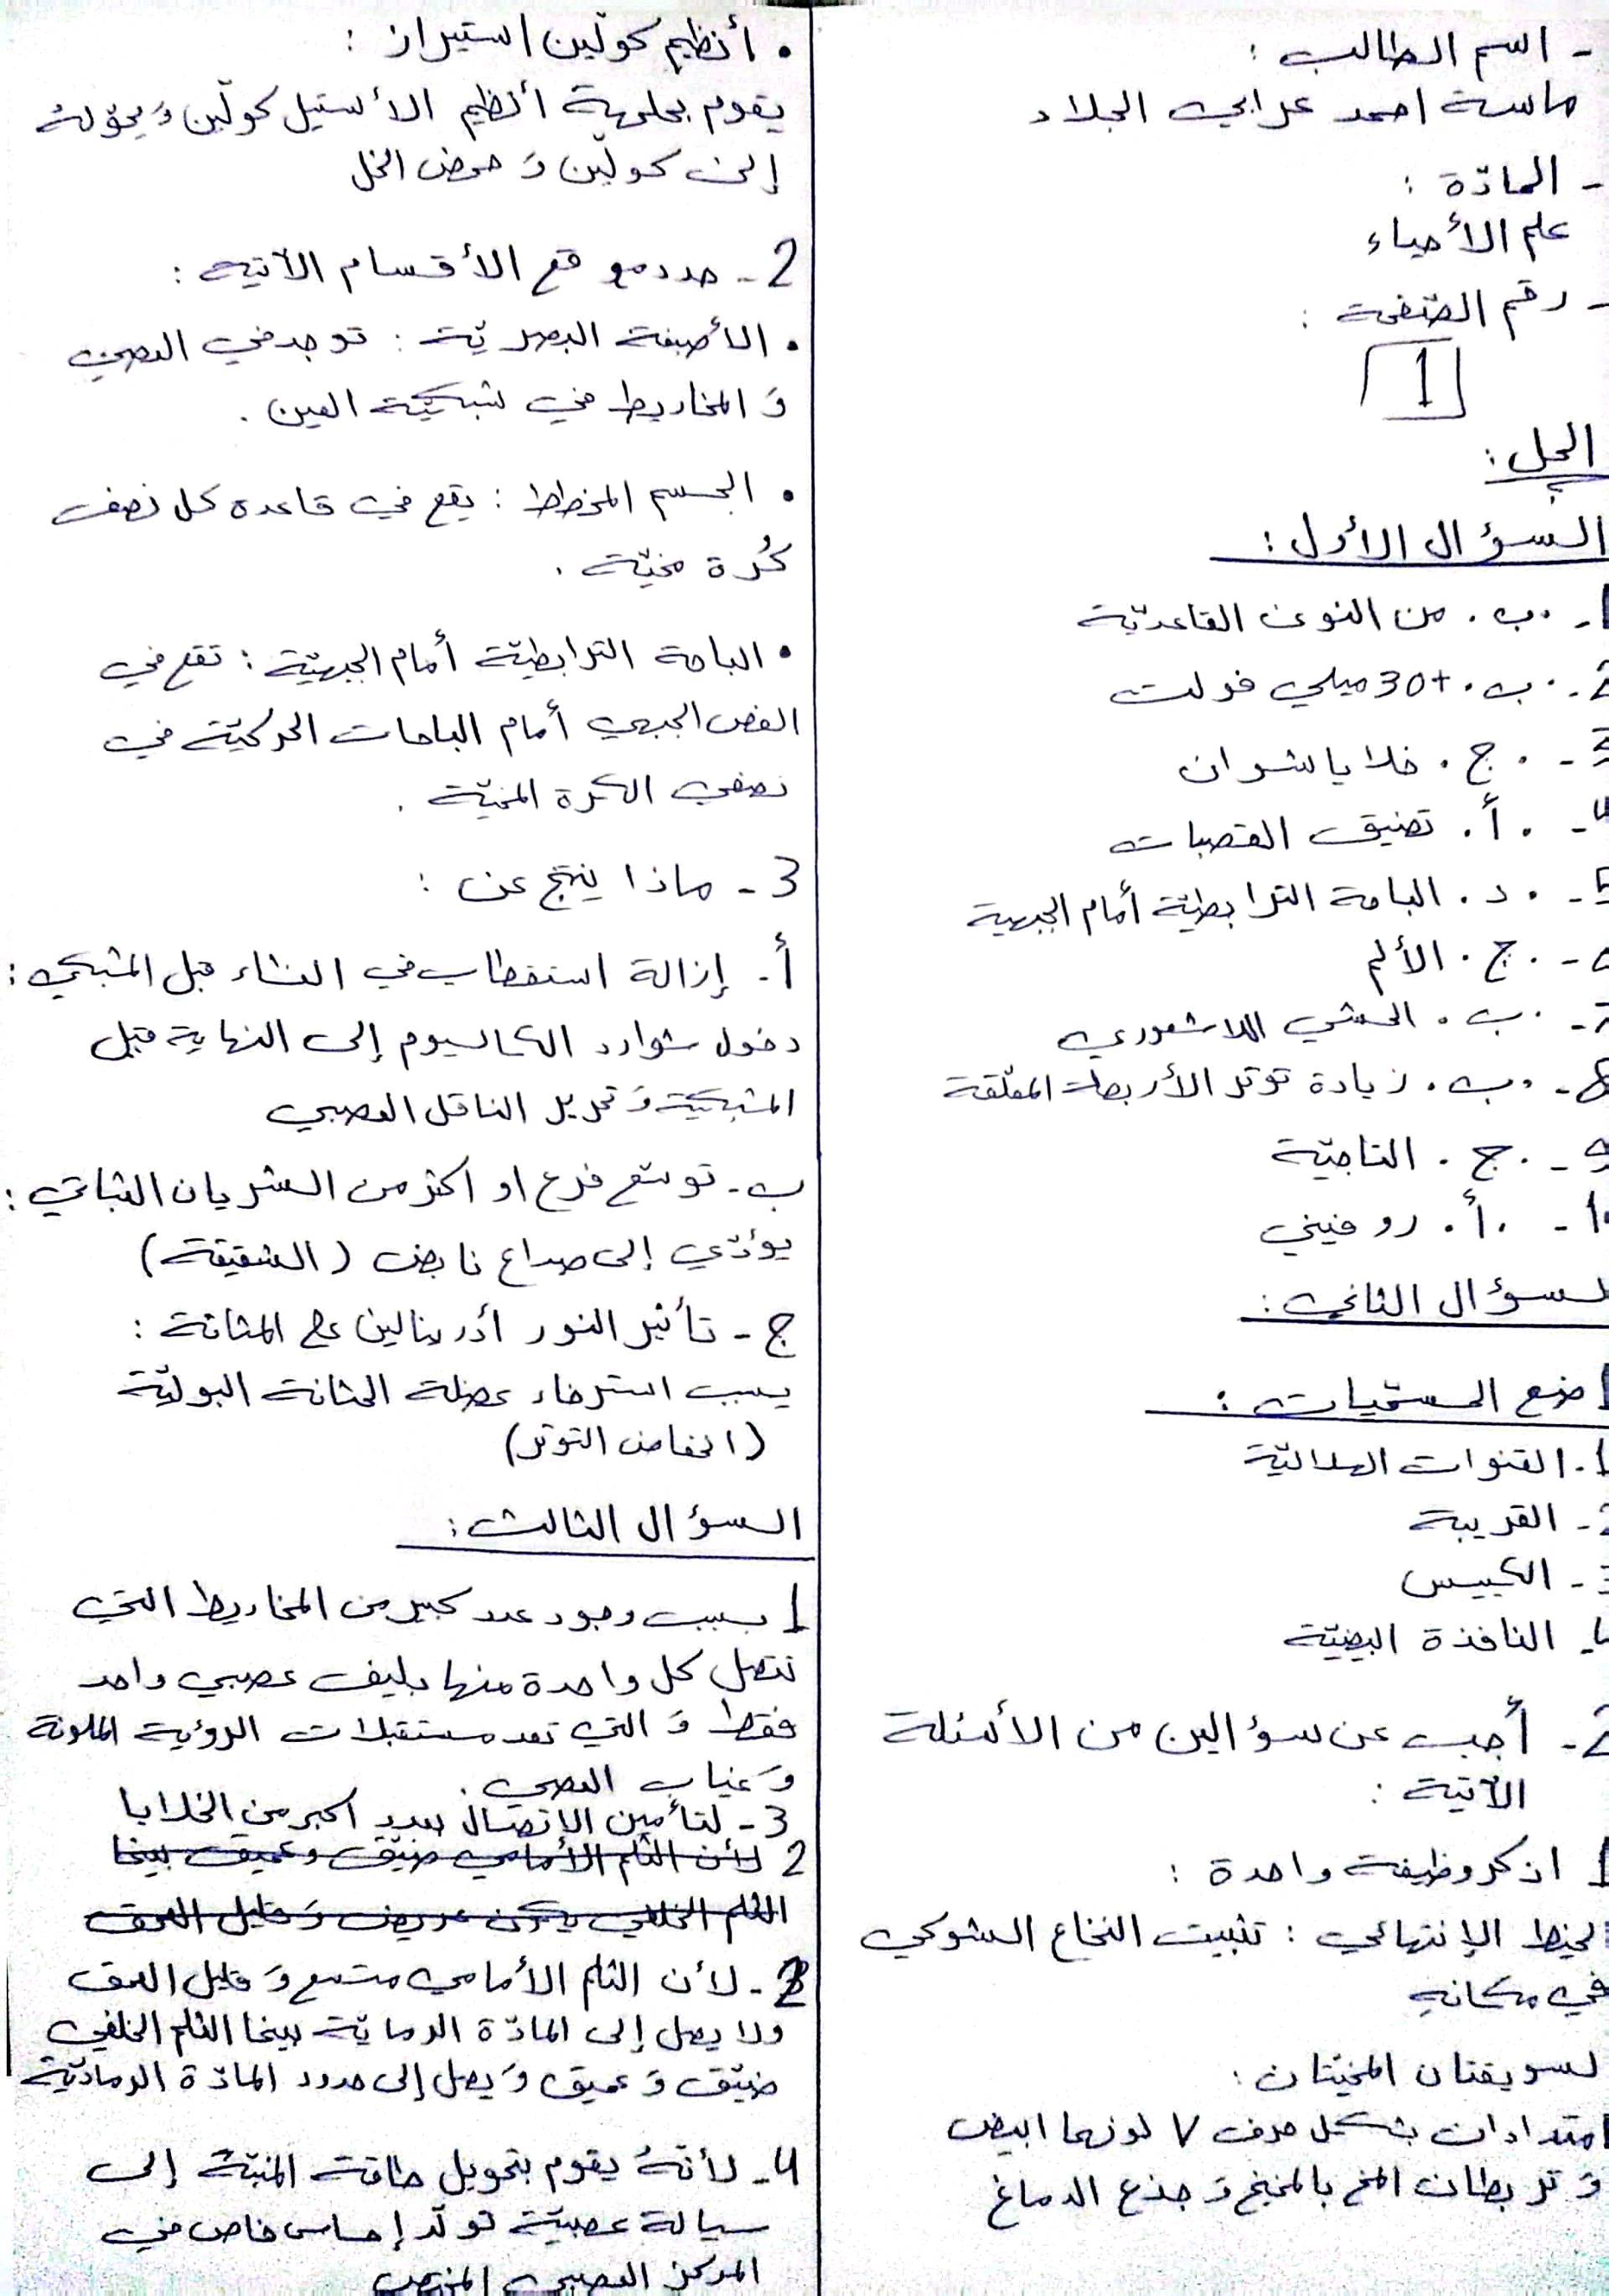 - اسم الطالب :
ماسة احمد عرابي الجلاد
- المادّة :
علم الأحياء
- رقم الصّفحة :
1
الحل :
السؤال الأول :
1- .ب. من النوى القاعديّة
2- .ب. +30 ميلي فولت
3- .ج. خلايا شوان
4- .أ. تضيق القصبات
5- .د. الباحة الترابطيّة أمام الجبهية
6- .ج. الألم
7- .ب. المشي اللاشعوري
8- .ب. زيادة توتر الأربطة المعلّقة
9- .ج. التاجيّة
10- .أ. روفيني
السؤال الثاني :
1 ضع المسمّيات :
1. القنوات الهلاليّة
2- القريبة
3- الكييس
4- النافذة البيضيّة
2- أجب عن سؤالين من الأسئلة
الآتية :
1 اذكر وظيفة واحدة :
الخيط الإنتهائي : تثبيت النخاع الشوكي
في مكانهِ
السويقتان المخيّتان :
امتدادان بشكل حرف V لونهما ابيض
وَ تربطان المخ بالمخيخ وَ جذع الدماغ
• أنظيم كولّين استيراز :
يقوم بحلمهة أنظيم الأستيل كولّين وَ يحوّلهُ
إلى كولّين وَ حمض الخل
2- حدد موقع الأقسام الآتية :
• الأصبغة البصريّة : توجد في العصي
وَ المخاريط في شبكيّة العين .
• الجسم المخطط : يقع في قاعدة كل نصف
كُرة مخيّة .
• الباحة الترابطيّة أمام الجبهيّة : تقع في
الفص الجبهي أمام الباحات الحركيّة في
نصفي الكرة المخيّة .
3- ماذا ينتج عن :
أ- إزالة استقطاب في الغشاء قبل المشبكي :
دخول شوارد الكالسيوم إلى النهاية قبل
المشبكيّة وَ تحرير الناقل العصبي
ب- توسّع فرع او اكثر من الشريان السّباتي :
يؤدّي إلى صداع نابض (الشقيقة)
ج- تأثير النور أدرينالين على المثانة :
يسبب استرخاء عضلة المثانة البوليّة
(انخفاض التوتر)
السؤال الثالث :
1 بسبب وجود عدد كبير من المخاريط التي
تتصل كل واحدة منها بليف عصبي واحد
فقط وَ التي تعد مستقبلات الرؤية الملونة
وَ غياب العصي .
3- لتأمين الاتصال بعدد اكبر من الخلايا
2 لأن الثلم الأمامي ضيّق وعميق بينما
الثلم الخلفي يكون عريض وَ قليل العمق
2- لأن الثلم الأمامي متسع وَ قليل العمق
ولا يصل إلى المادّة الرماديّة بينما الثلم الخلفي
ضيّق وَ عميق وَ يصل إلى حدود المادّة الرماديّة
4- لأنّهُ يقوم بتحويل طاقة المنبّه إلى
سيالة عصبيّة تولّد إحساس خاص في
المركز العصبي المختص